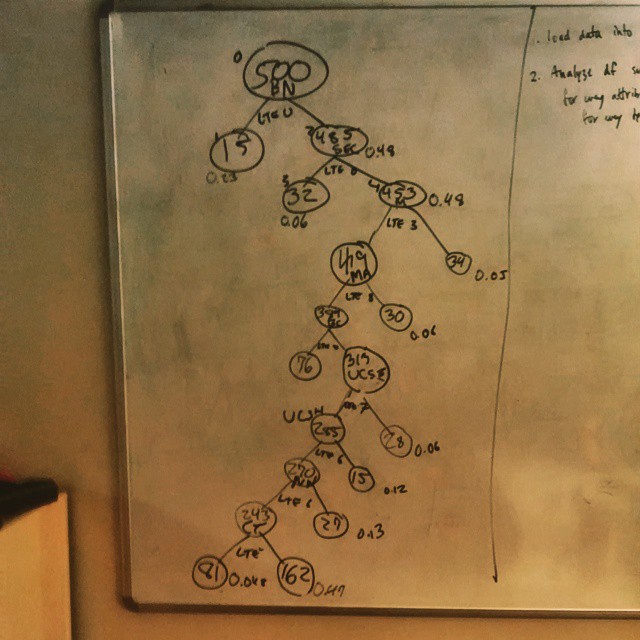 0
500
BN
LTE 0
15
0.23
485
0.48
LTE 0
3
32
0.06
4 453
0.48
LTE 3
419
MA
34
0.05
LTE 8
30
0.06
76
319
UCSE
UCSH
285
28
0.06
LTE 6
270
15
0.12
LTE 6
243
CT
27
0.13
LTE
81
0.048
162
0.47
1. load data into
2. Analyze df
for any attrib
for any